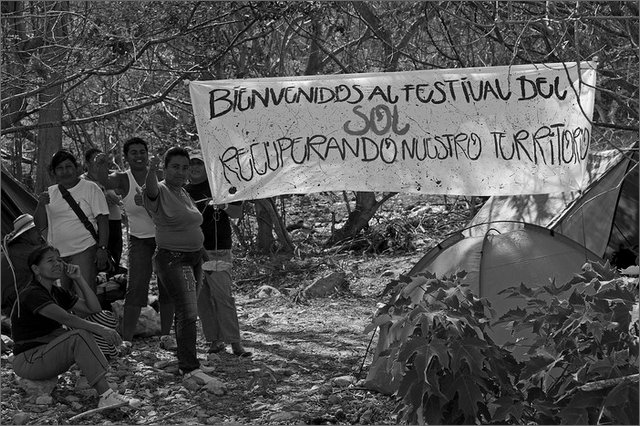 BIENVENIDOS AL FESTIVAL DEL
SOL
RECUPERANDO NUESTRO TERRITORIO